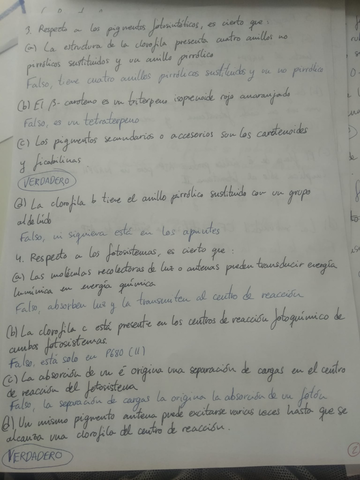 3. Respecto a los pigmentos fotosintéticos, es cierto que:
(a) La estructura de la clorofila presenta cuatro anillos no
pirrólicos sustituidos y un anillo pirrólico
Falso, tiene cuatro anillos pirrólicos sustituidos y un no pirrólico
(b) El β-caroteno es un triterpeno isoprenoide rojo anaranjado
Falso, es un tetraterpeno
(c) Los pigmentos secundarios o accesorios son los carotenoides
y ficobilinas
VERDADERO
(d) La clorofila b tiene el anillo pirrólico sustituido con un grupo
aldehído
Falso, ni siquiera está en los apuntes
4. Respecto a los fotosistemas, es cierto que:
(a) Las moléculas recolectoras de luz o antenas pueden transducir energía
lumínica en energía química
Falso, absorben luz y la transmiten al centro de reacción
(b) La clorofila c está presente en los centros de reacción fotoquímico de
ambos fotosistemas
Falso, está solo en P680 (II)
(c) La absorción de un é origina una separación de cargas en el centro
de reacción del fotosistema
Falso, la separación de cargas la origina la absorción de un fotón
(d) Un mismo pigmento antena puede excitarse varias veces hasta que se
alcanza una clorofila del centro de reacción.
VERDADERO